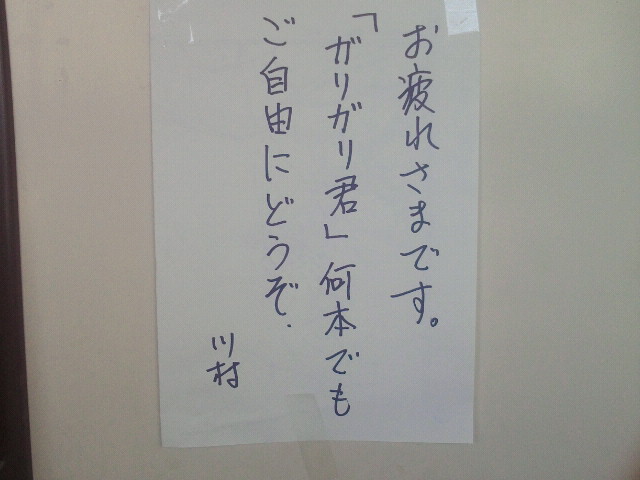 お疲れさまです。
「ガリガリ君」何本でも
ご自由にどうぞ.
川村